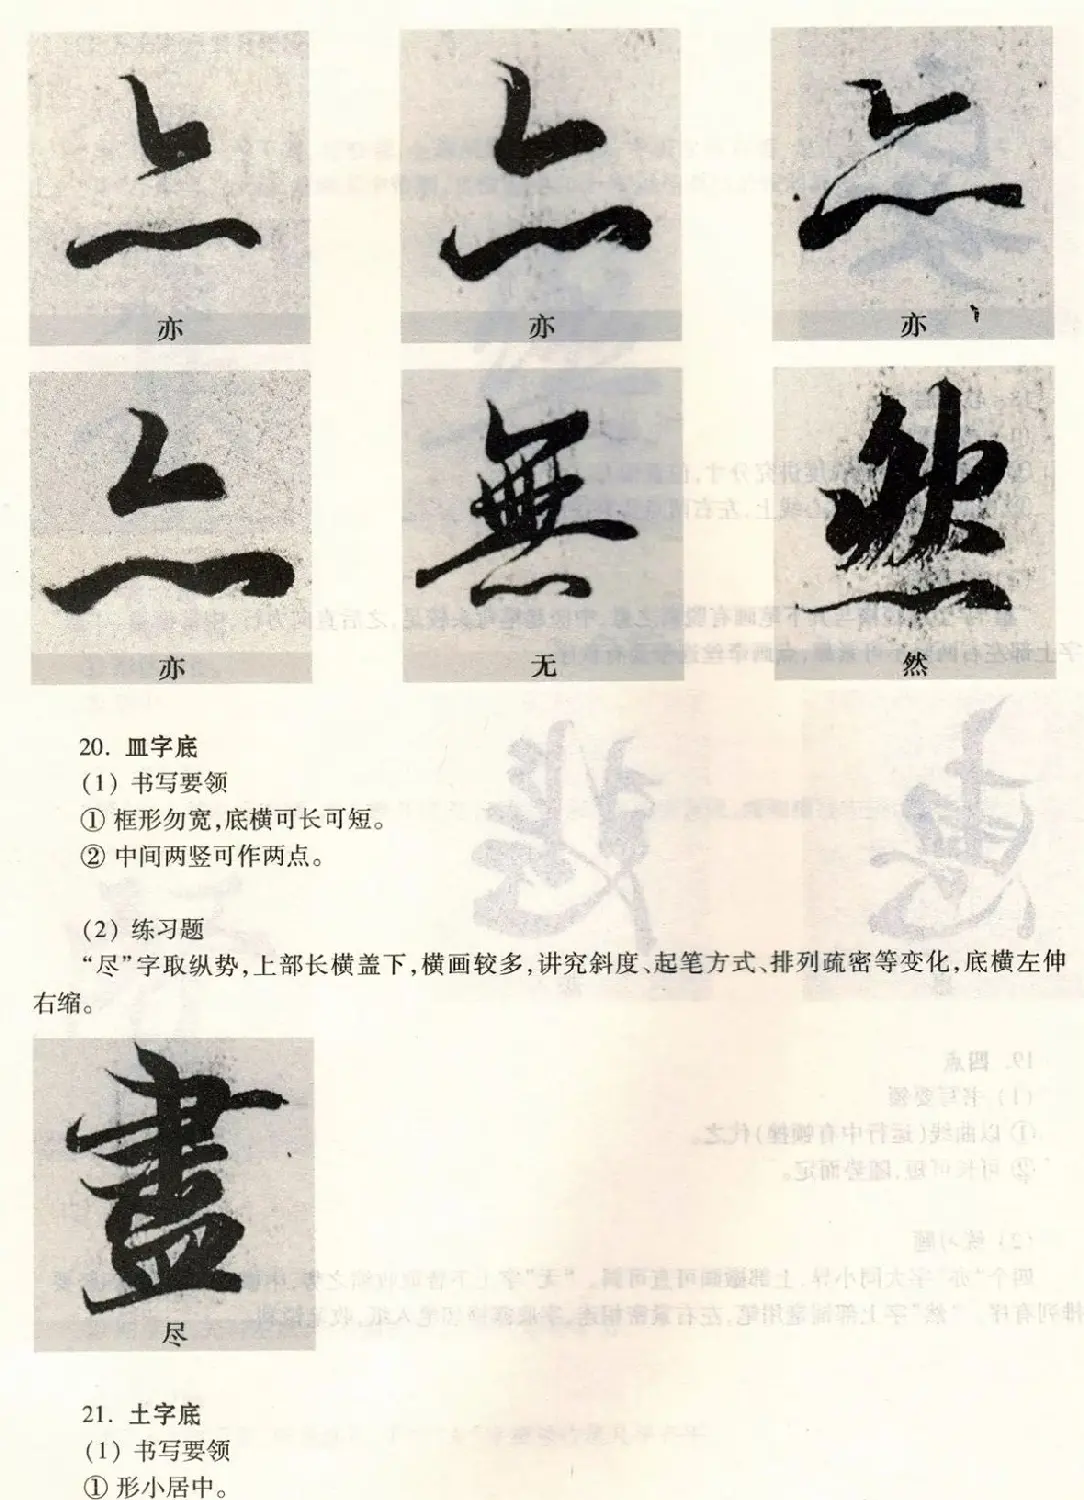 亦 亦 亦
亦 无 然
20. 皿字底
(1) 书写要领
① 框形勿宽,底横可长可短。
② 中间两竖可作两点。
(2) 练习题
“尽”字取纵势,上部长横盖下,横画较多,讲究斜度、起笔方式、排列疏密等变化,底横左伸
右缩。
盡
尽
21. 土字底
(1) 书写要领
① 形小居中。